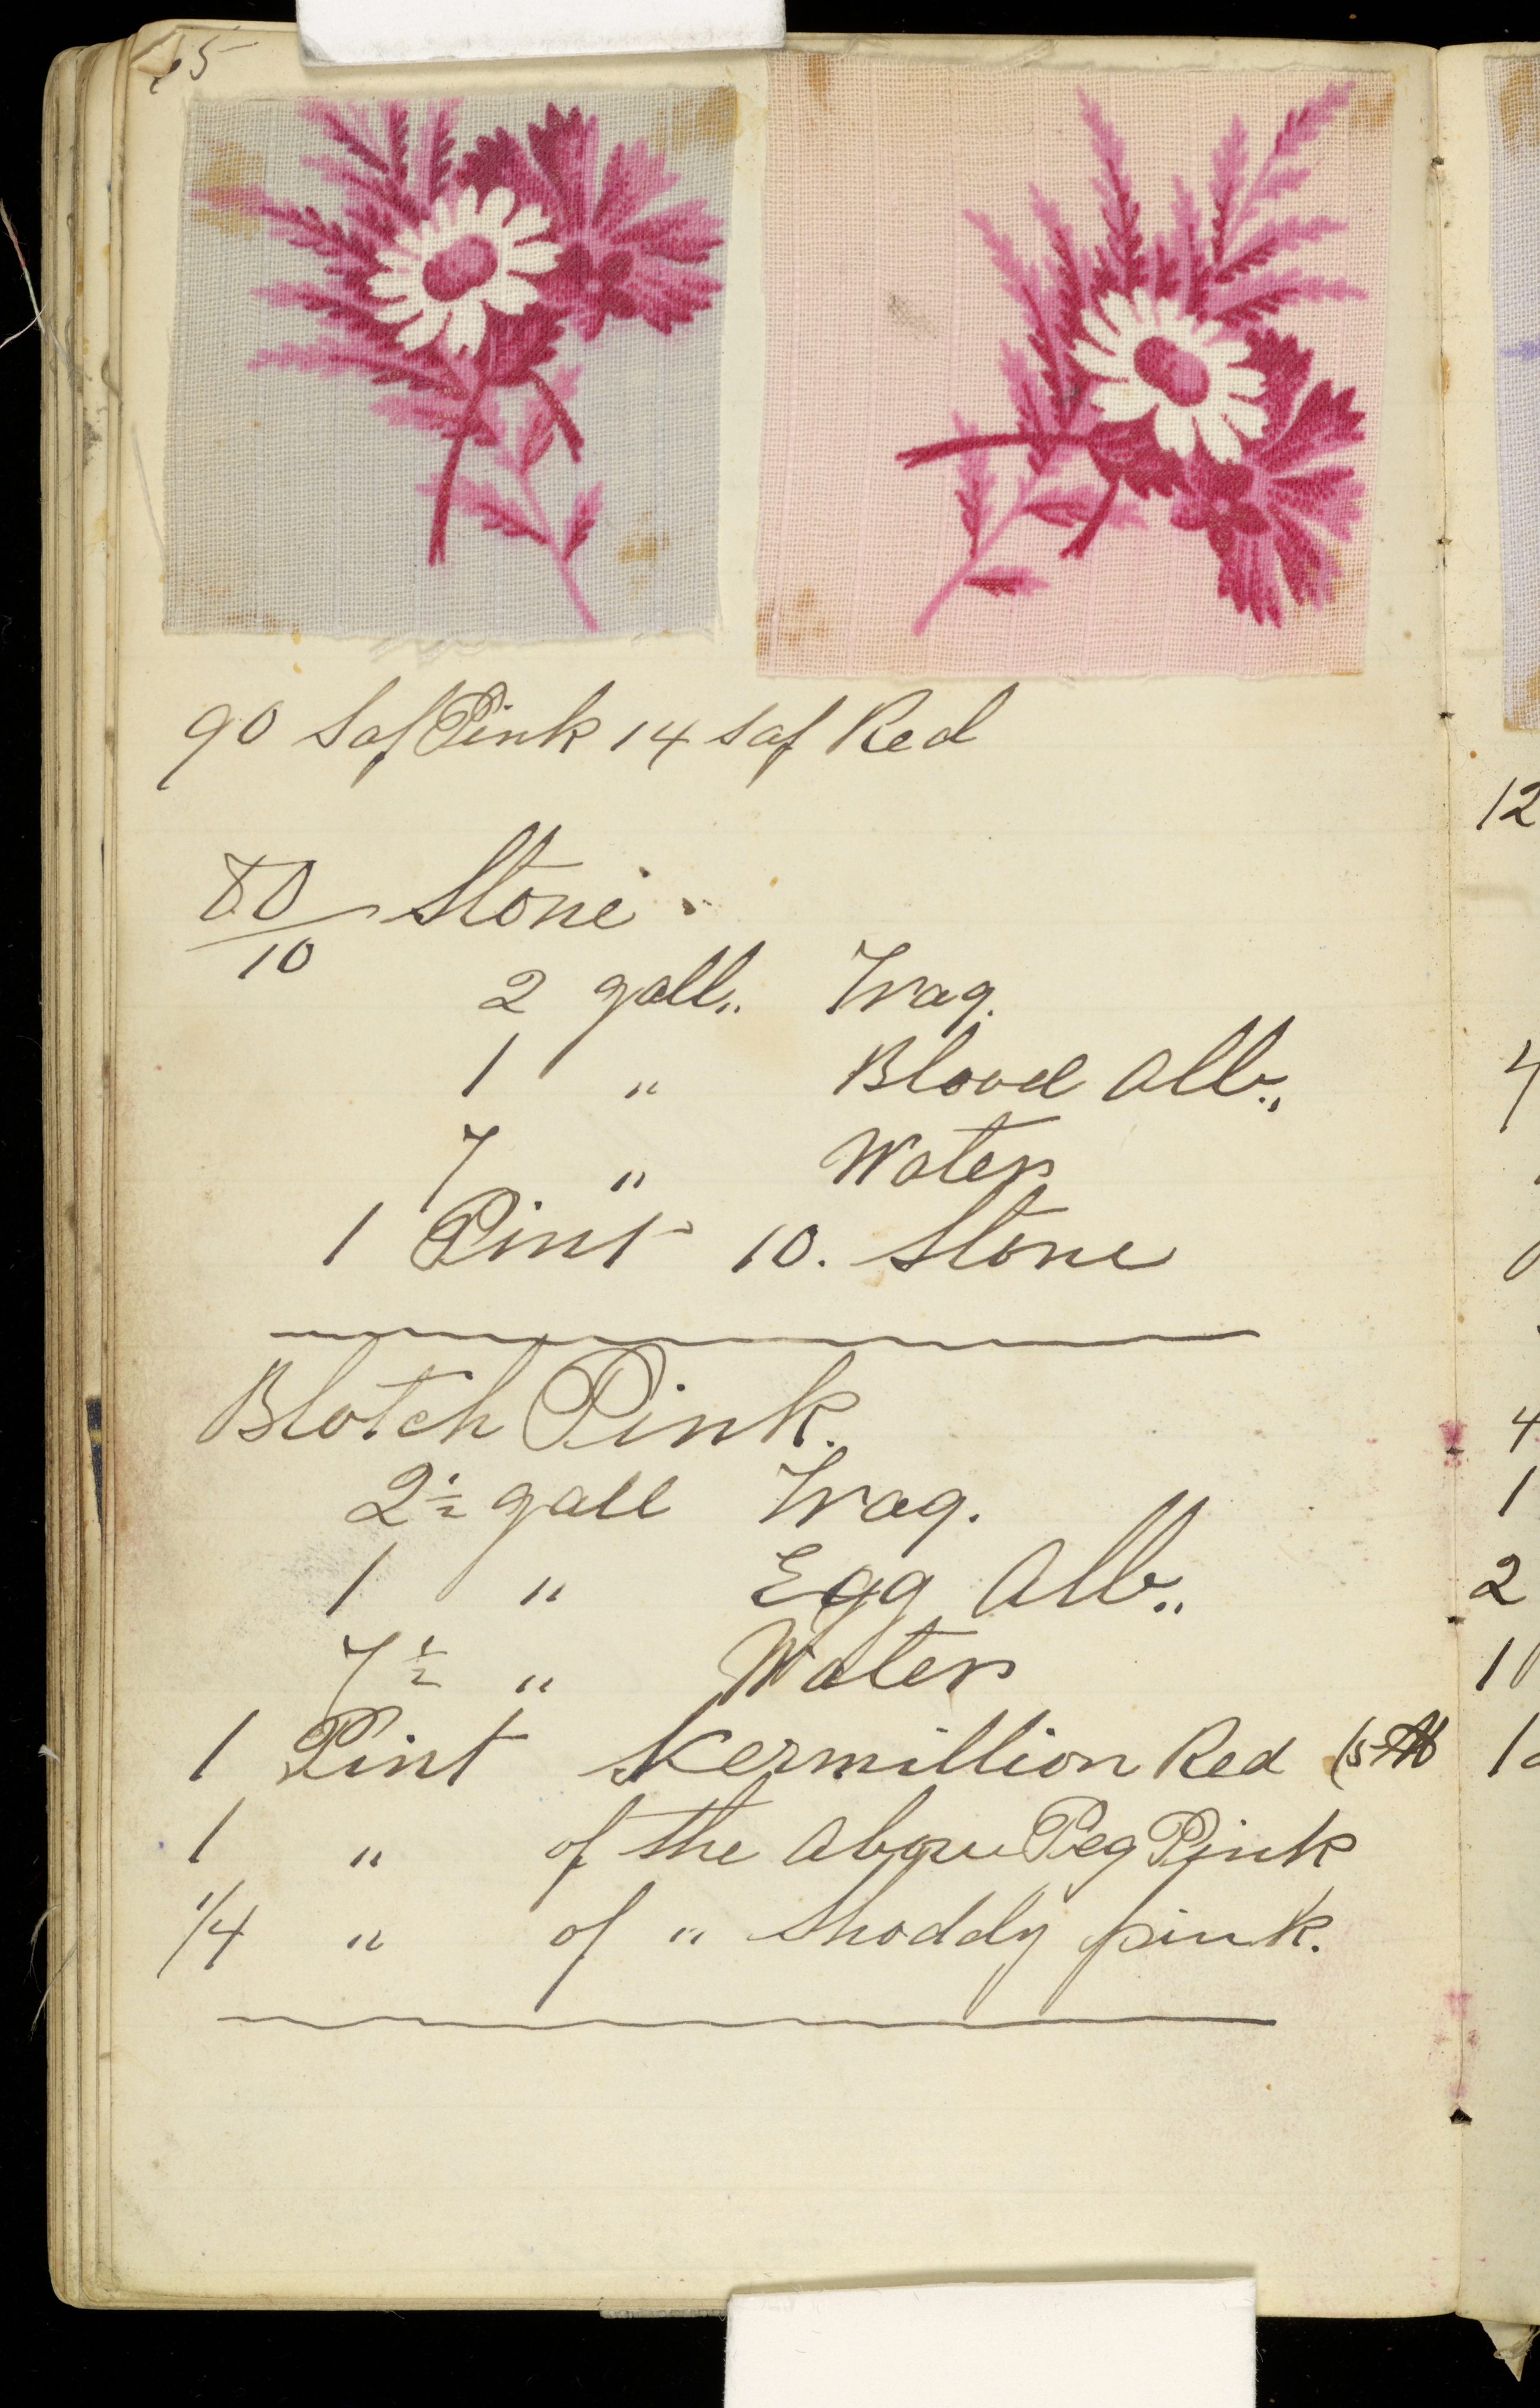 65
90 Saf Pink 14 Saf Red
80/10 Stone
2 gall,, Trag.
1 " Blood Alb.,,
7 " Water
1 Pint 10. Stone
Blotch Pink.
2½ gall Trag.
1 " Egg Alb.,,
7½ " Water
1 Pint Kermillion Red
1 " of the Above Peg Pink
1/4 " of " Shoddy pink.
12
4
4
1
2
10